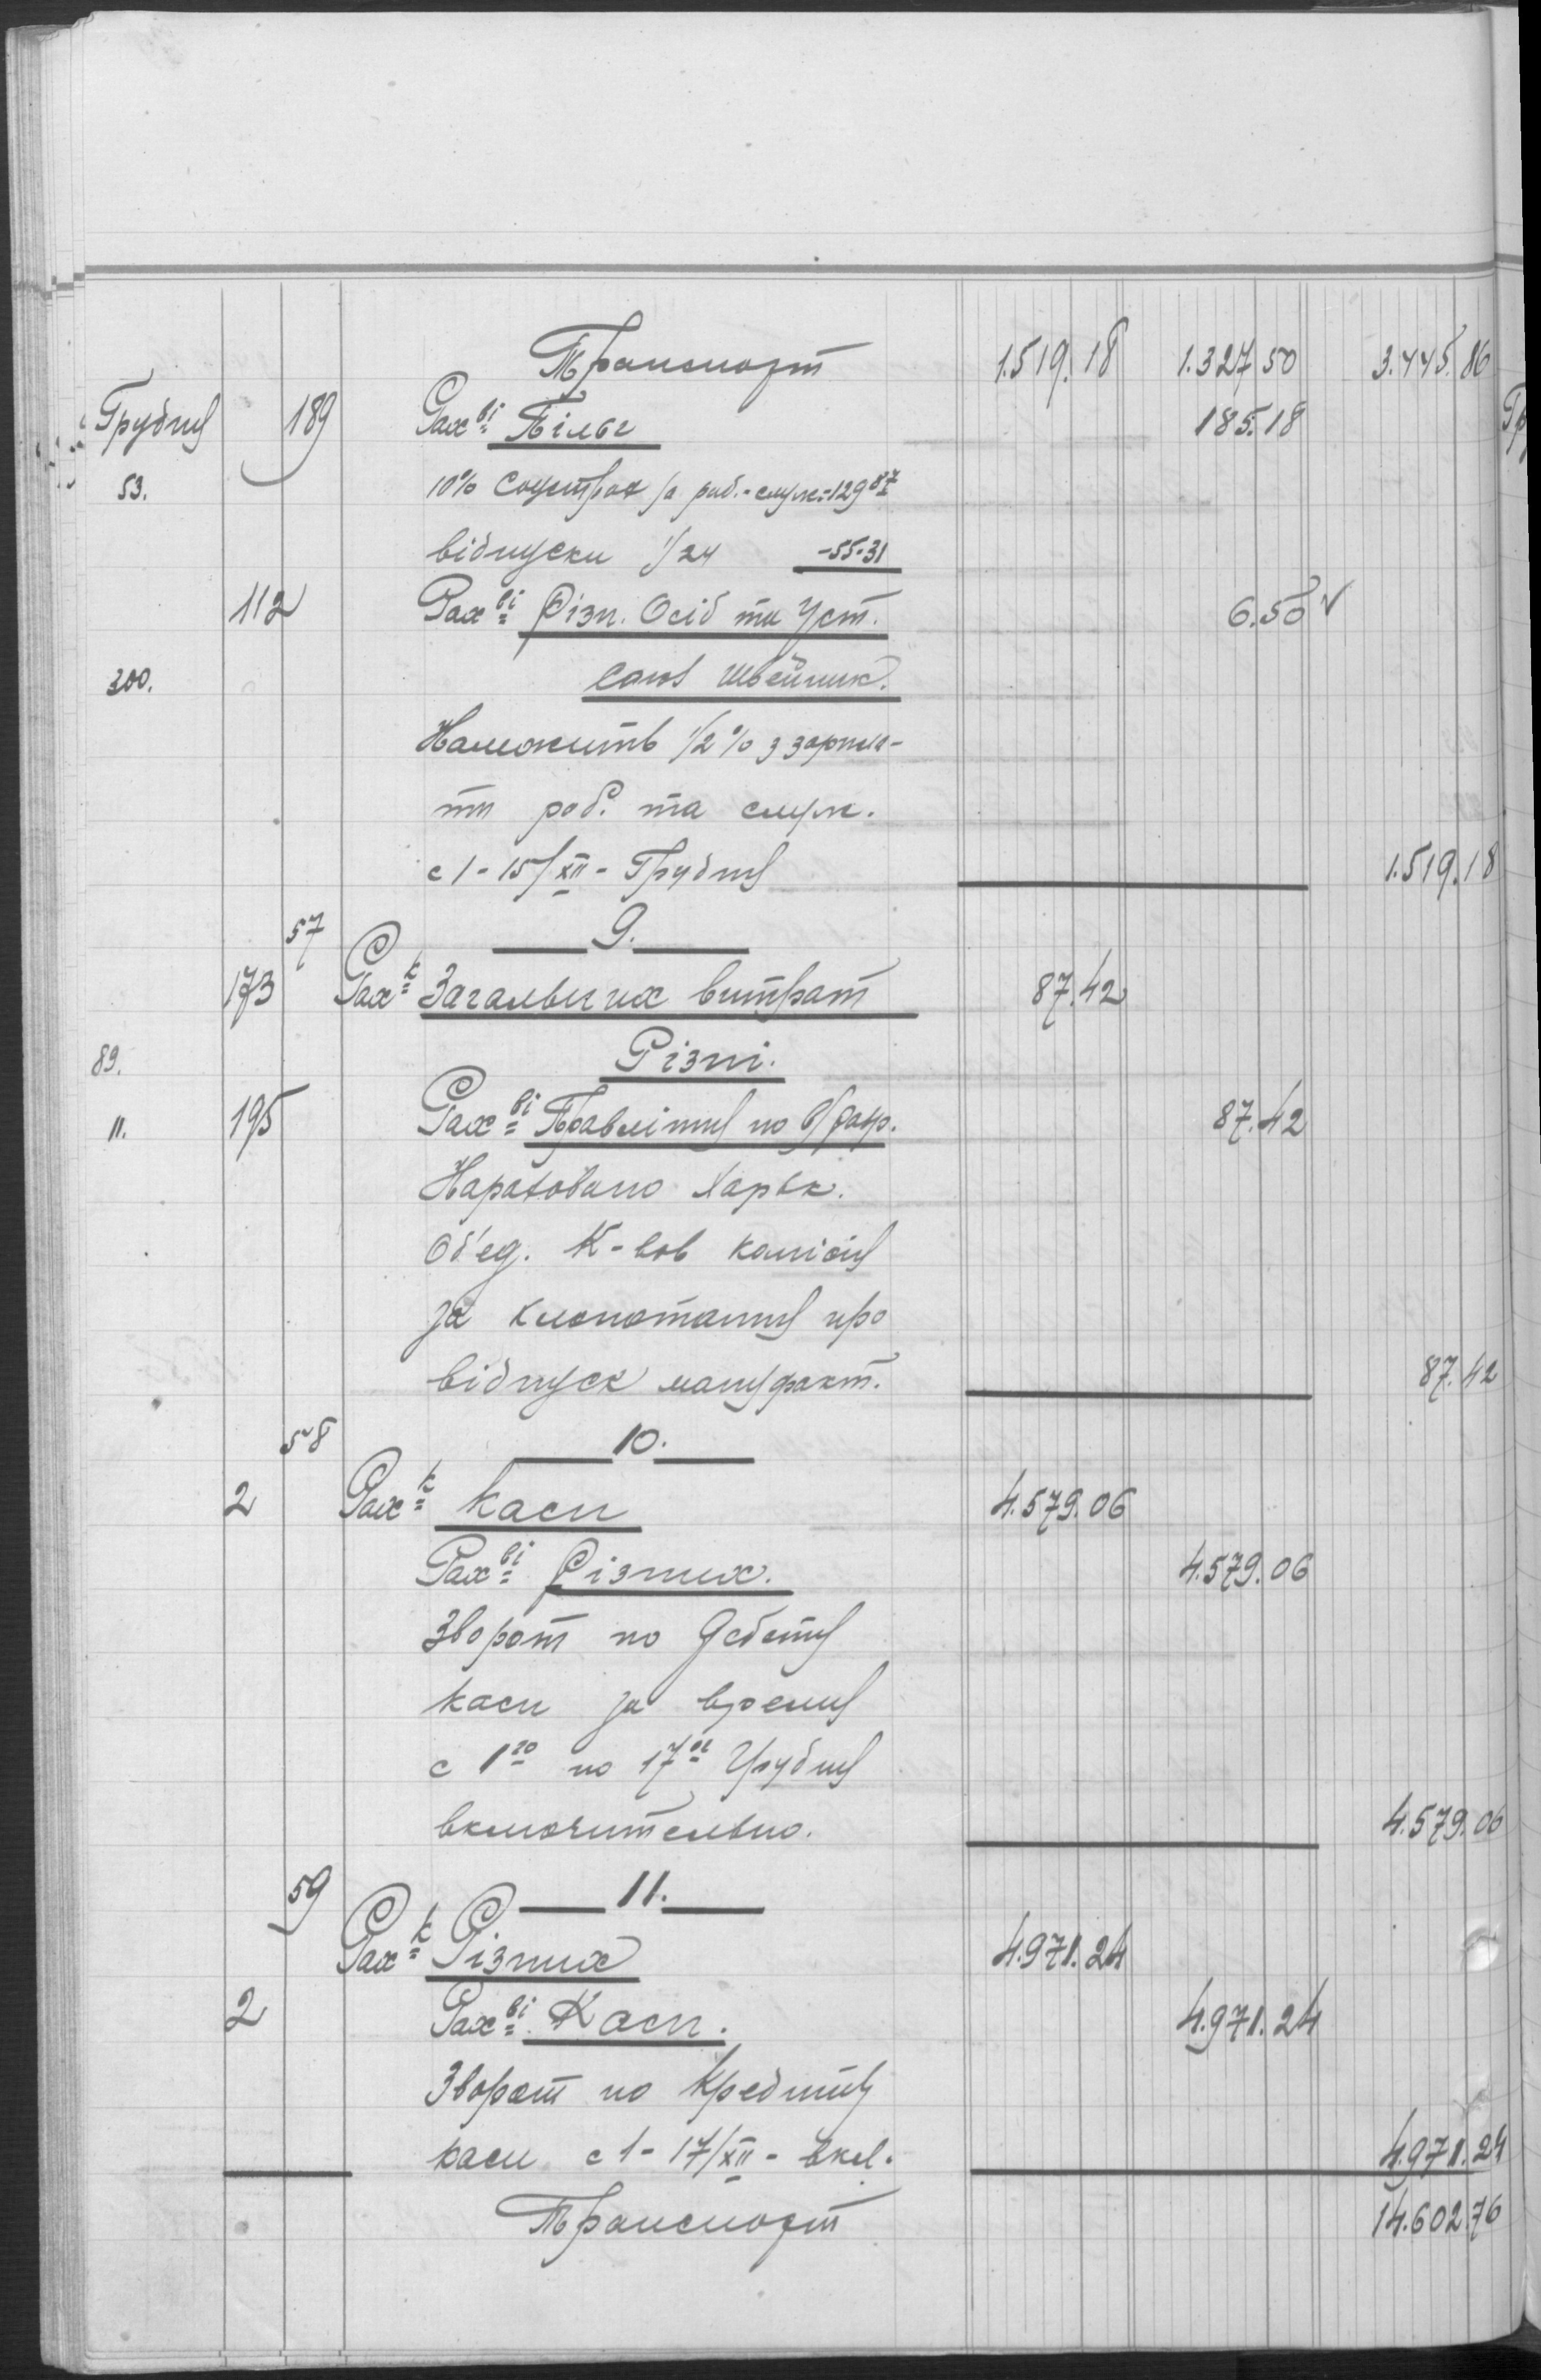 Транспорт 1.519.18 1.327 50 3.445.86
Грудня 189 Рах ві Пільг 185.18
53. 10% Соцстрах за роб.-служ.-129 87
відпуски 1/24 -55-31
112 Рах ві Різн. Осіб та Уст. 6.50 ✓
300. Союз швейник.
Належить 1/2 % з зарпла-
ти роб. та служ.
с 1-15/XII - Грудня 1.519.18
57 9.
173 Рах к Загальних витрат 87.42
89. Різні.
11. 195 Рах ві Правління по 87.42
Нараховано Харьк.
Об'єд. К-вов комісія
за клопотання про
відпуск мануфакт. 87.42
58 10.
2 Рах к Каси 4.579.06
Рах ві Різних. 4.579.06
Зворот по Дебету
каси за время
с 1го по 17ое Грудня
включительно. 4.579.06
59 11.
Рах к Різних 4.971.24
2 Рах ві Каси. 4.971.24
Зворот по Кредиту
каси с 1-17/XII - вкл. 4.971.24
Транспорт 14.602.76